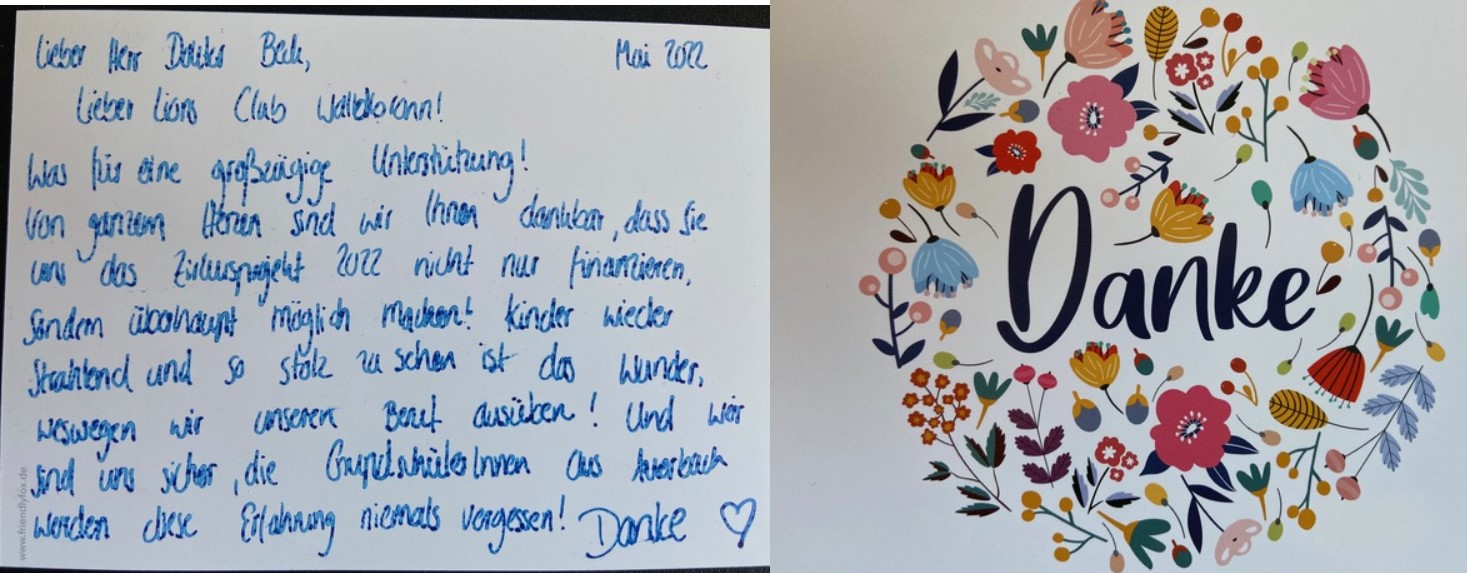 Lieber Herr Doktor Beck,
Mai 2022
Lieber Lions Club Walldorf!
Was für eine großzügige Unterstützung!
Von ganzem Herzen sind wir Ihnen dankbar, dass Sie
uns das Zirkusprojekt 2022 nicht nur finanzieren,
sondern überhaupt möglich machen! Kinder wieder
strahlend und so stolz zu sehen ist das Wunder,
weswegen wir unseren Beruf ausüben! Und wir
sind uns sicher, die GrundschülerInnen aus Auerbach
werden diese Erfahrung niemals vergessen! Danke
www.friendlyfox.de
Danke